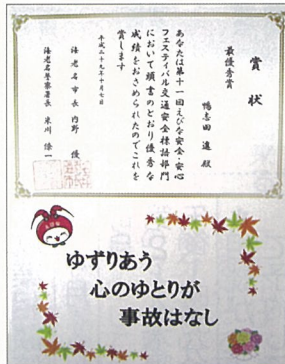 賞状
最優秀賞
鴨志田 進 殿
あなたは第十一回えびな安全・安心
フェスティバル交通安全標語部門
において頭書のとおり優秀な
成績をおさめられたのでこれを
賞します
平成二十九年十月七日
海老名市長 内野 優
海老名警察署長 米川 修一
ゆずりあう
心のゆとりが
事故はなし